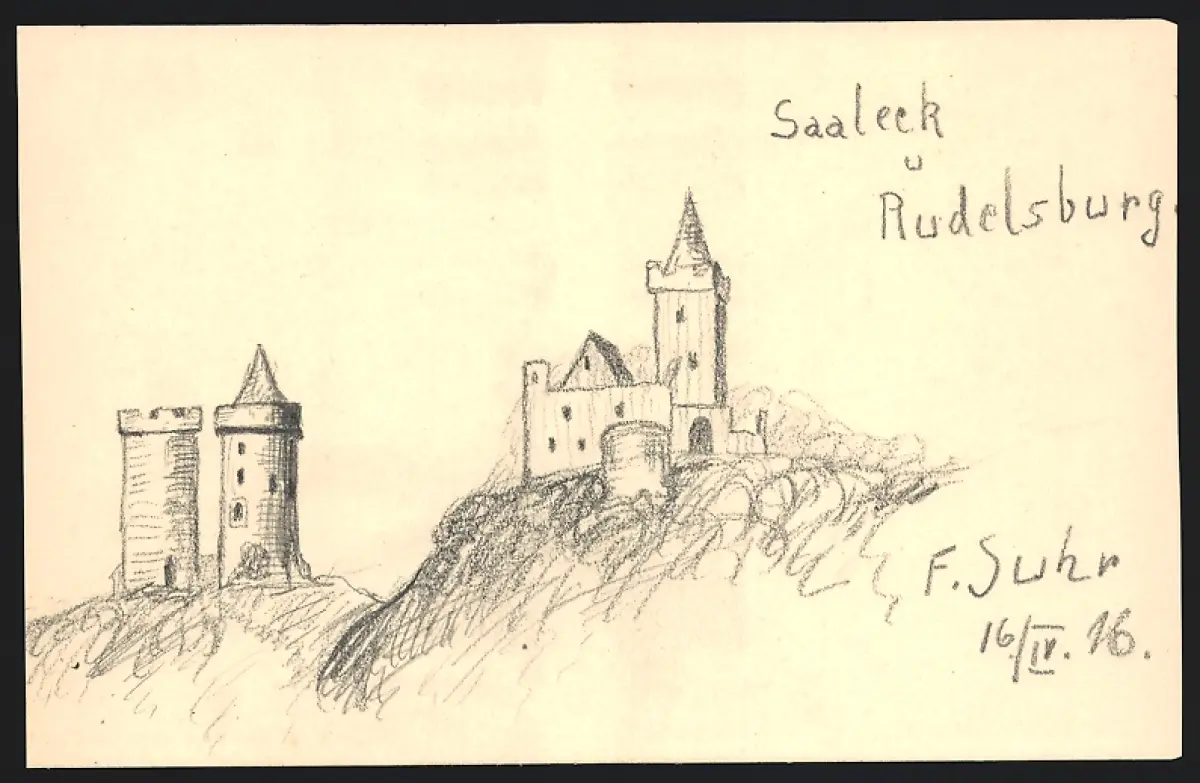 Saaleck
u
Rudelsburg.
F. Suhr
16/IV. 16.